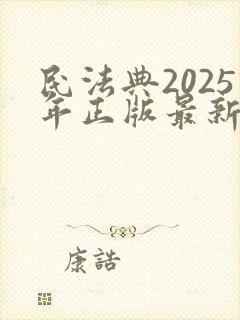 民法典2025
年正版最新
康誥